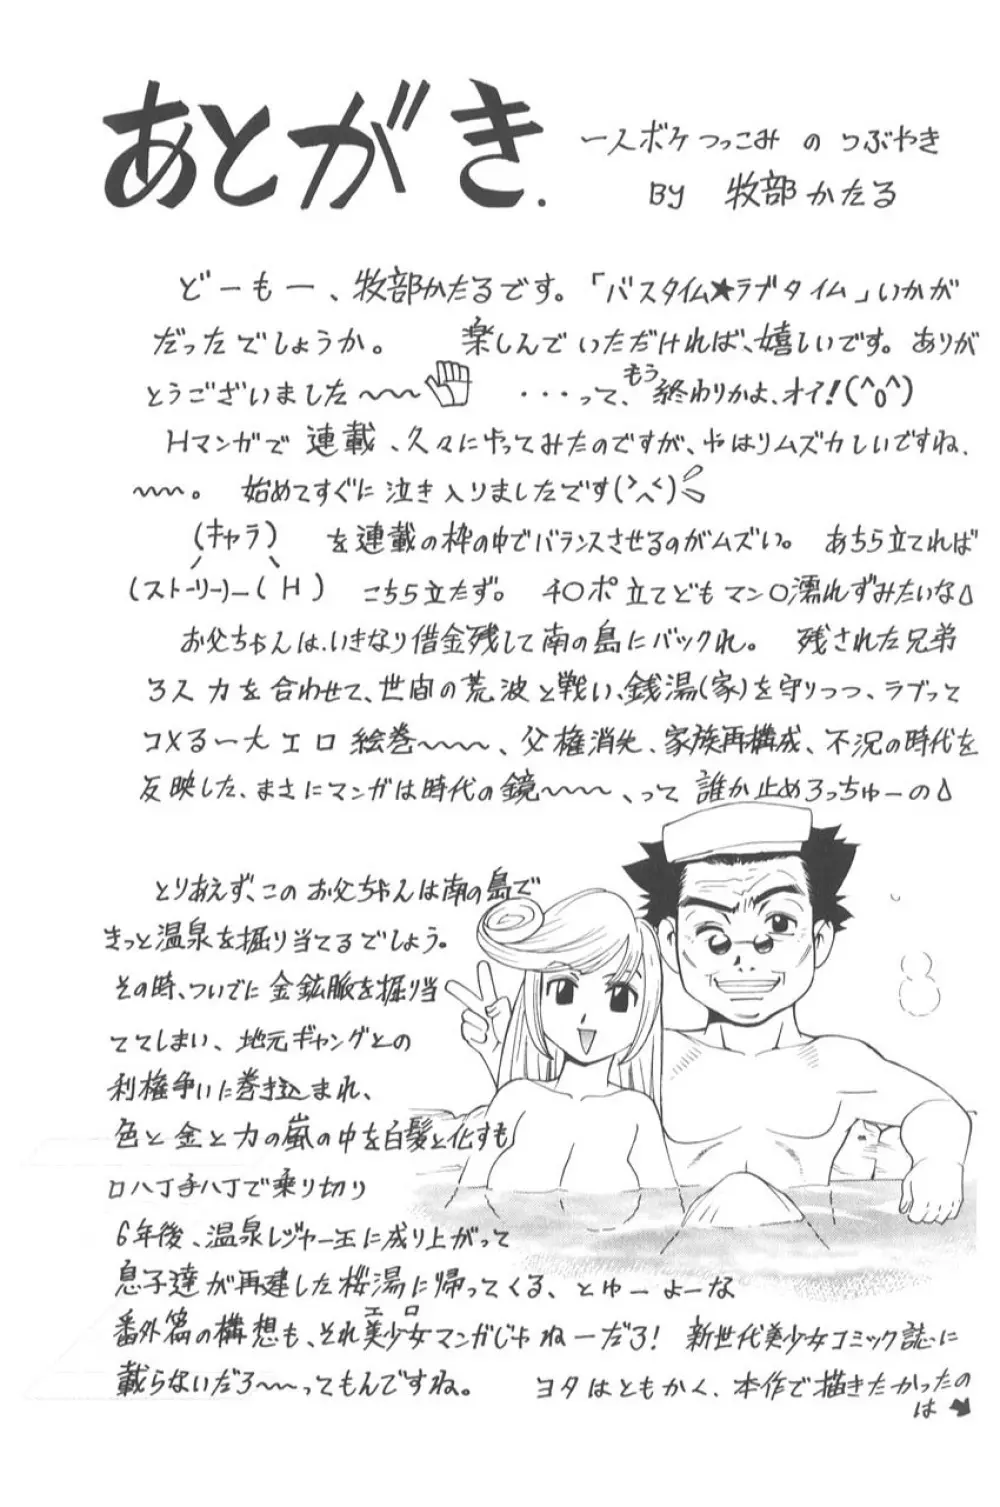 あとがき.
一人ボケつっこみ の つぶやき
BY 牧部かたる
どーもー、牧部かたるです。「バスタイム★ラブタイム」いかが
だったでしょうか。 楽しんでいただければ、嬉しいです。ありが
とうございました〜〜 ・・・って、もう終わりかよ、オイ!(^o^)
Hマンガで連載、久々にやってみたのですが、やはりムズカしいですね、
〜〜。 始めてすぐに泣き入りましたです(>へ<)
(キャラ) を連載の枠の中でバランスさせるのがムズい。 あちら立てれば
(ストーリー)ー(H) こちら立たず。 チ○ポ立てどもマン○濡れずみたいな
お父ちゃんは、いきなり借金残して南の島にバックれ。 残された兄弟
3人力を合わせて、世間の荒波と戦い、銭湯(家)を守りつつ、ラブって
コメる一大エロ絵巻〜〜〜、父権消失、家族再構成、不況の時代を
反映した、まさにマンガは時代の鏡〜〜〜、って 誰か止めろっちゅーの
とりあえず、この お父ちゃんは南の島で
きっと温泉を掘り当てるでしょう。
その時、ついでに金鉱脈を掘り当
ててしまい、地元ギャングとの
利権争いに巻き込まれ、
色と金と力の嵐の中を白髪と化すも
口八丁手八丁で乗り切り
6年後、温泉レジャー王に成り上がって
息子達が再建した桜湯に帰ってくる、とゅーよーな
番外篇の構想も、それ美少女エロマンガじゃねーだろ! 新世代美少女コミック誌に
載らないだろ〜〜ってもんですね。 ヨタはともかく、本作で描きたかったの
は